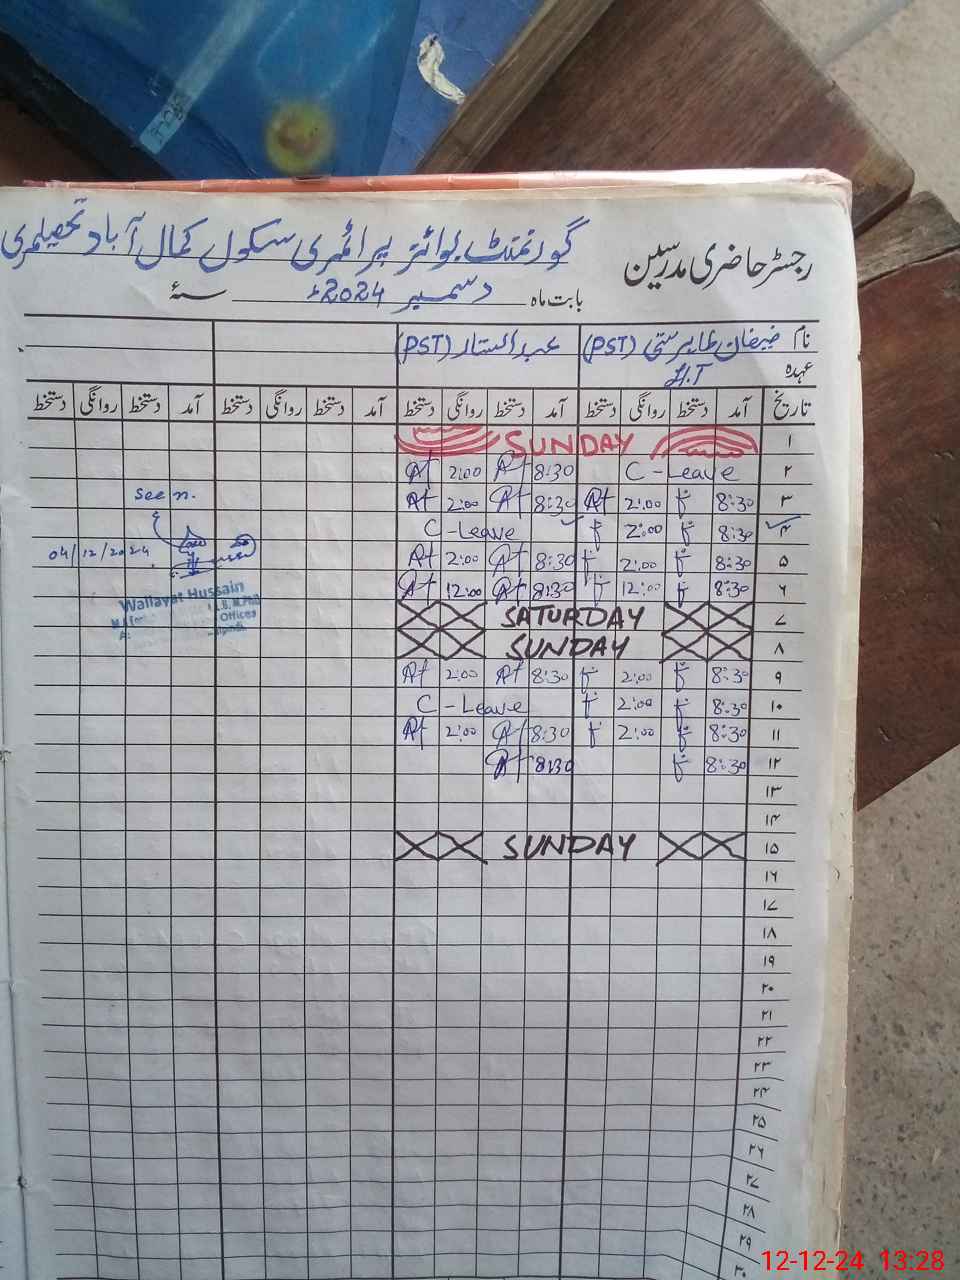 رجسٹر حاضری مدرسین
گورنمنٹ بوائز پرائمری سکول کمال آباد تحصیل مری
بابت ماہ دسمبر 2024ء سنہء
نام (PST) عبدالستار (PST)
عہدہ H.T
تاریخ آمد دستخط روانگی دستخط آمد دستخط روانگی دستخط آمد دستخط روانگی دستخط آمد دستخط روانگی دستخط
۱ SUNDAY
۲ C-Leave 8:30 2:00
۳ 8:30 2:00 8:30 2:00
۴ 8:30 2:00 C-Leave
۵ 8:30 2:00 8:30 2:00
۶ 8:30 12:00 8:30 12:00
۷ SATURDAY
۸ SUNDAY
۹ 8:30 2:00 8:30 2:00
۱۰ 8:30 2:00 C-Leave
۱۱ 8:30 2:00 8:30 2:00
۱۲ 8:30 8:30
۱۳
۱۴
۱۵ SUNDAY
۱۶
۱۷
۱۸
۱۹
۲۰
۲۱
۲۲
۲۳
۲۴
۲۵
۲۶
۲۷
۲۸
۲۹
۳۰
seen.
04/12/2024
Wallayat Hussain
12-12-24 13:28